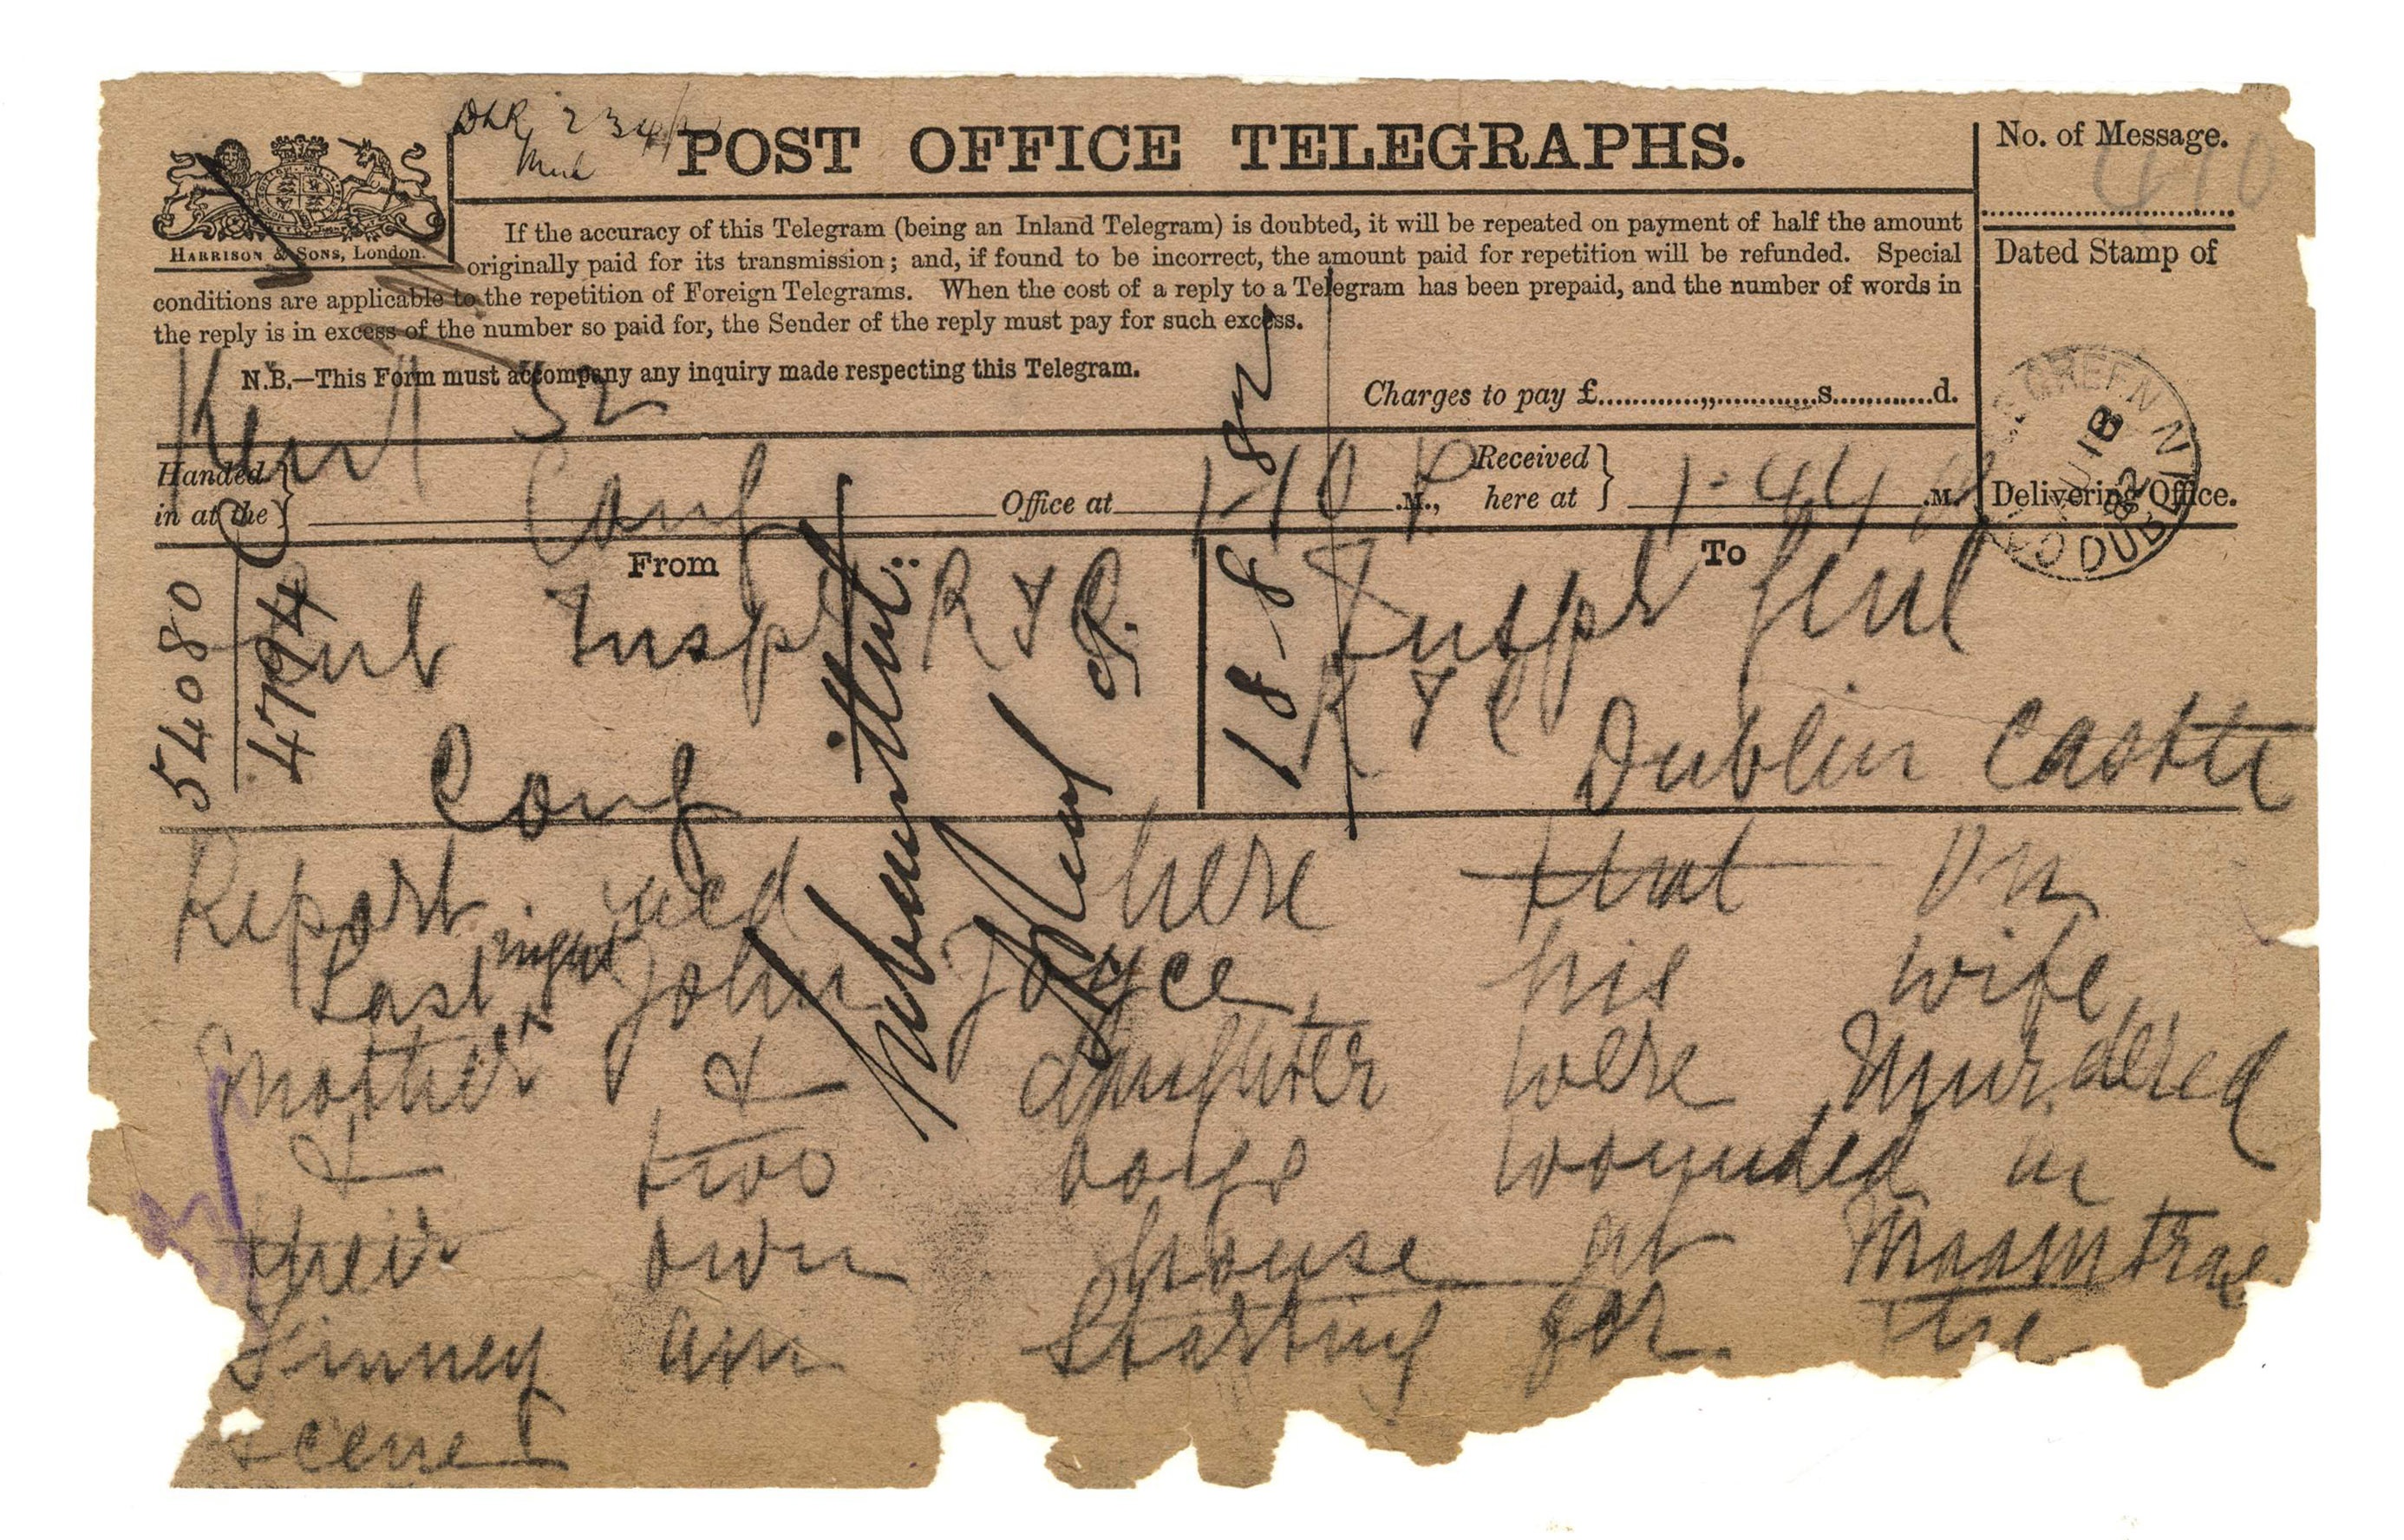 DLR 234/
POST OFFICE TELEGRAPHS.
No. of Message.
HARRISON & SONS, LONDON.
If the accuracy of this Telegram (being an Inland Telegram) is doubted, it will be repeated on payment of half the amount
originally paid for its transmission; and, if found to be incorrect, the amount paid for repetition will be refunded. Special
conditions are applicable to the repetition of Foreign Telegrams. When the cost of a reply to a Telegram has been prepaid, and the number of words in
the reply is in excess of the number so paid for, the Sender of the reply must pay for such excess.
N.B.—This Form must accompany any inquiry made respecting this Telegram.
Charges to pay £ „ s. d.
Dated Stamp of
Delivering Office.
GREEN
18
82
DUBLIN
52
Handed in at the } Cong Office at 1-10 P M., Received here at } 1.44 M.
From
To
Sub Inspr R I C
Cong
Inspr Genl
R I C
Dublin Castle
54080
4794
Submitted:
18-8-82
Report recd here that on
Last night John Joyce, his wife,
mother & daughter were Murdered
& two boys wounded in
their own house at Maamtras
Kinney am Starting for the
scene